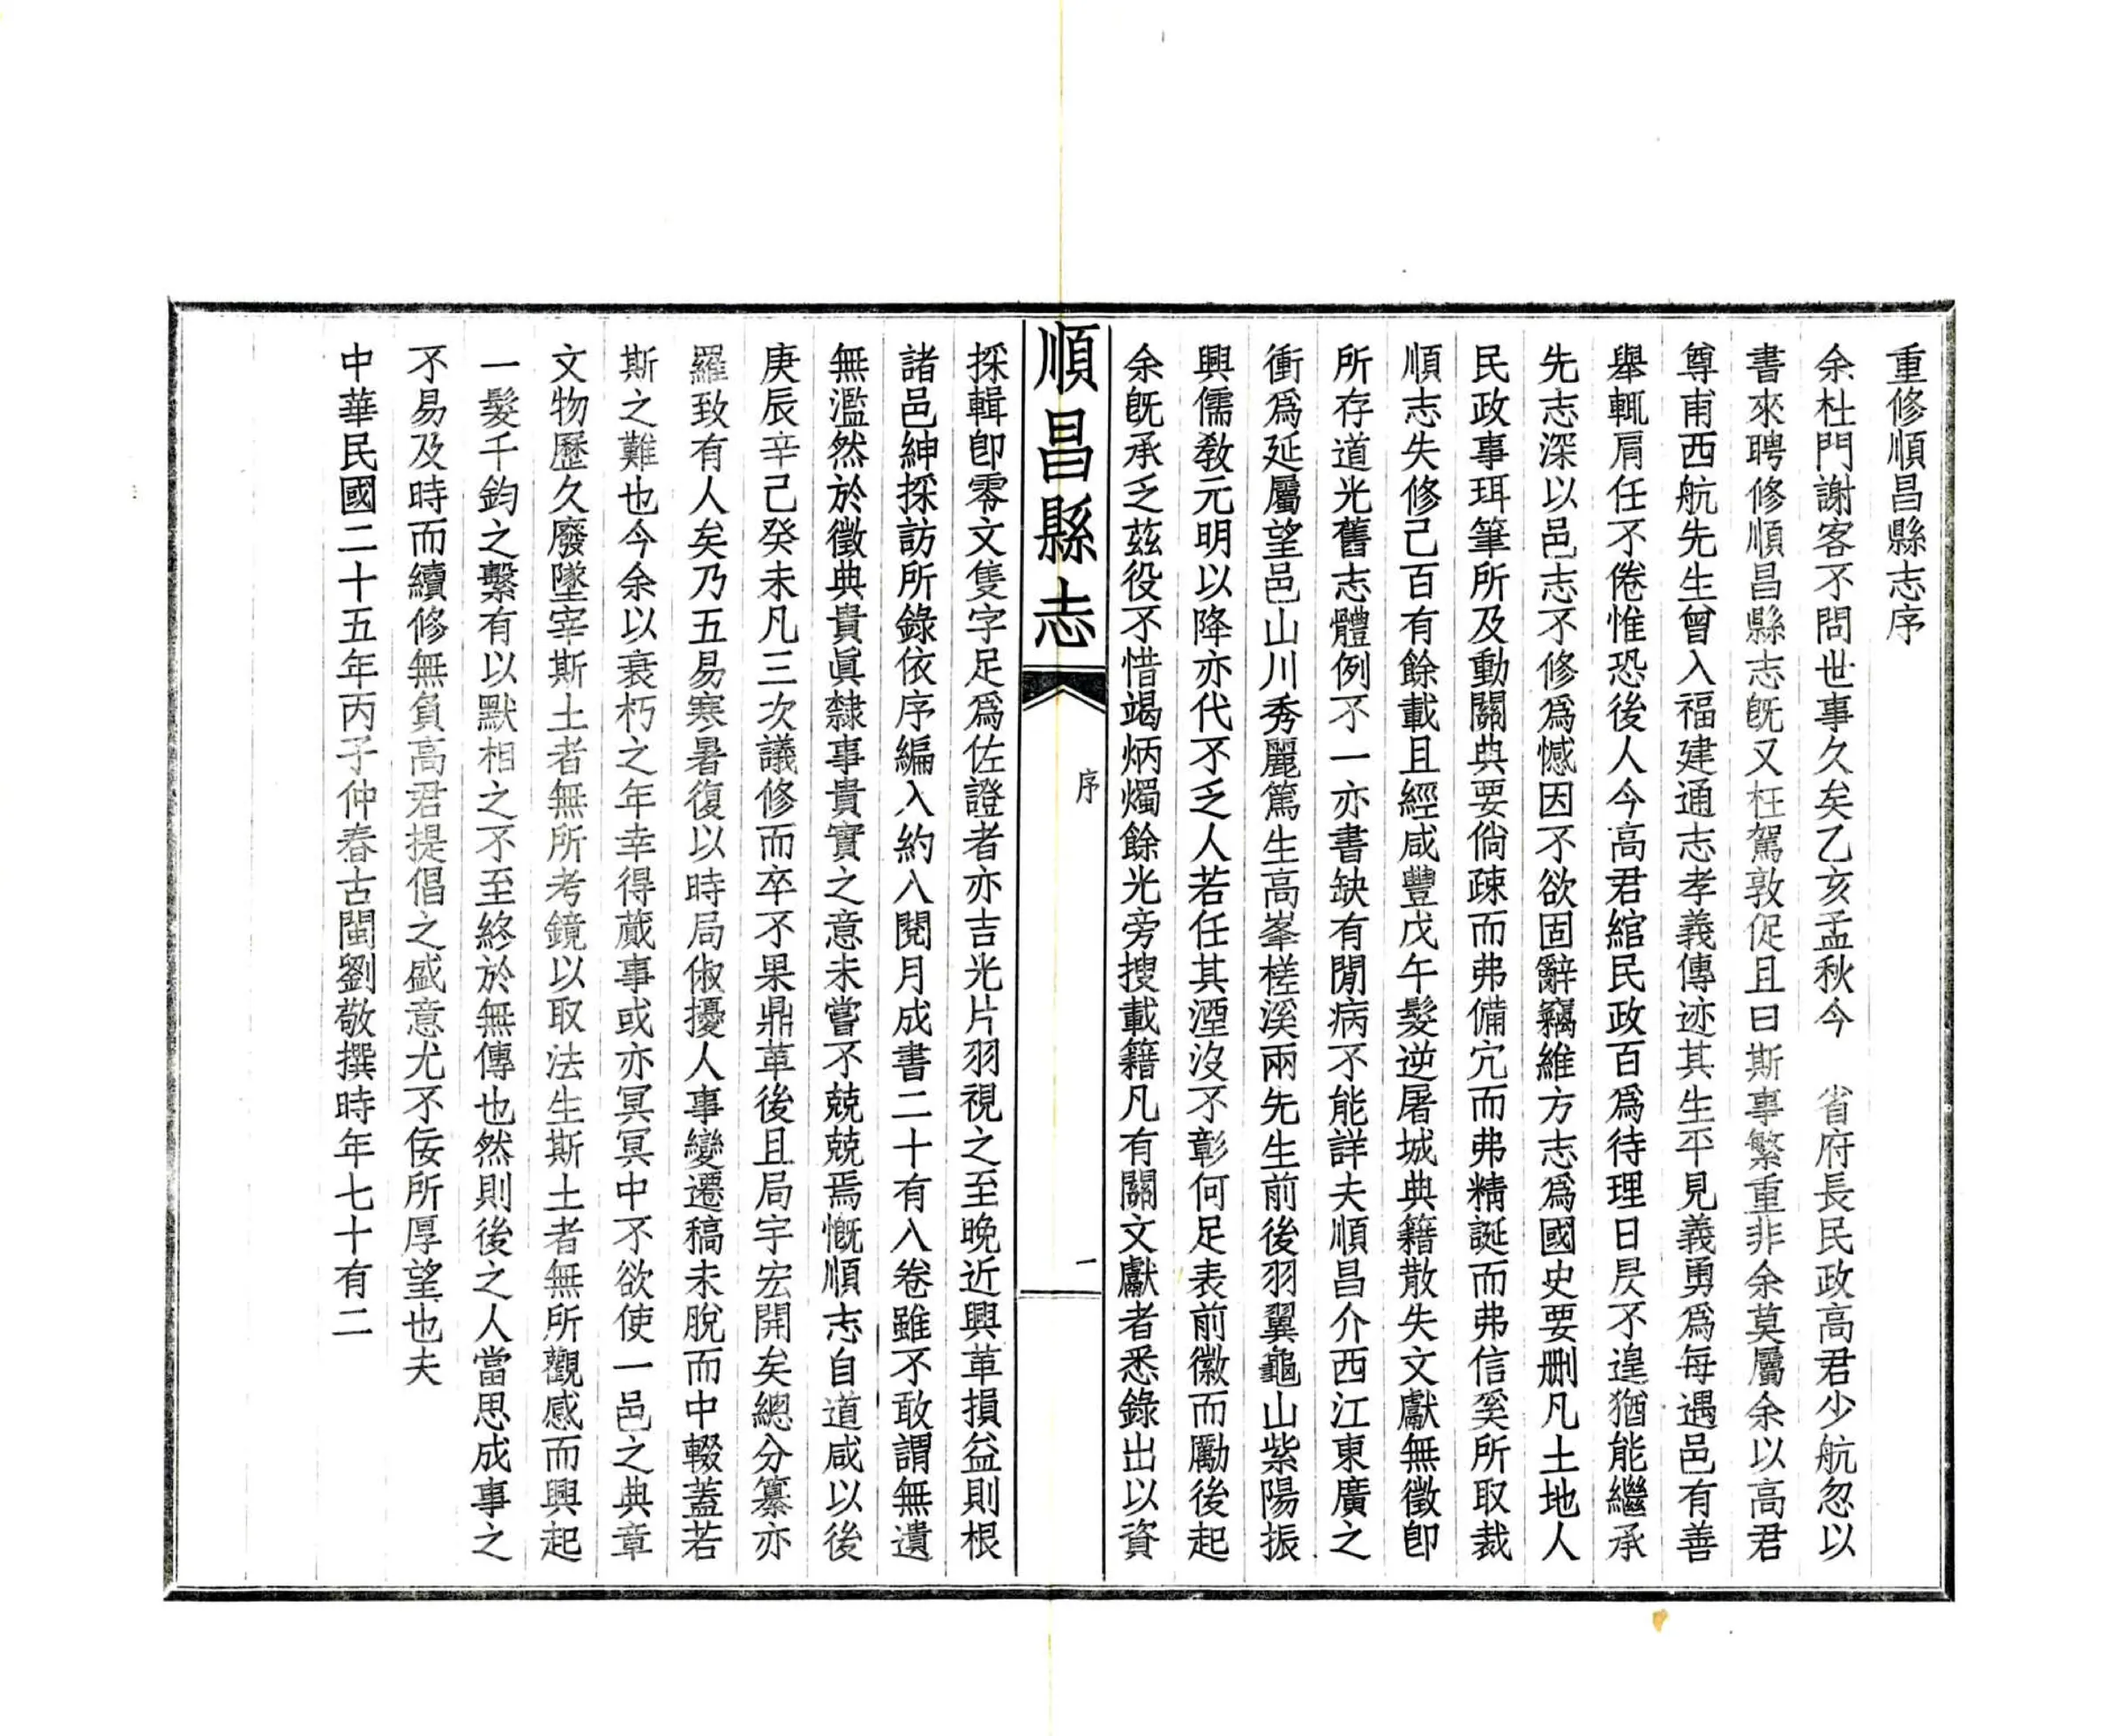 重修順昌縣志序
余杜門謝客不問世事久矣乙亥孟秋今　省府長民政高君少航忽以
書來聘修順昌縣志旣又枉駕敦促且曰斯事繁重非余莫屬余以高君
尊甫西航先生曾入福建通志孝義傳迹其生平見義勇爲每遇邑有善
舉輒肩任不倦惟恐後人今高君綰民政百爲待理日昃不遑猶能繼承
先志深以邑志不修爲憾因不欲固辭竊維方志爲國史要删凡土地人
民政事珥筆所及動關典要倘疎而弗備宂而弗精誕而弗信奚所取裁
順志失修已百有餘載且經咸豐戊午髮逆屠城典籍散失文獻無徵卽
所存道光舊志體例不一亦書缺有閒病不能詳夫順昌介西江東廣之
衝爲延屬望邑山川秀麗篤生高峯槎溪兩先生前後羽翼龜山紫陽振
興儒敎元明以降亦代不乏人若任其湮沒不彰何足表前徽而勵後起
余旣承乏茲役不惜竭炳燭餘光旁搜載籍凡有關文獻者悉錄出以資
順昌縣志
序
一
採輯卽零文隻字足爲佐證者亦吉光片羽視之至晚近興革損益則根
諸邑紳採訪所錄依序編入約八閱月成書二十有八卷雖不敢謂無遺
無濫然於徵典貴眞隸事貴實之意未嘗不兢兢焉慨順志自道咸以後
庚辰辛己癸未凡三次議修而卒不果鼎革後且局宇宏開矣總分纂亦
羅致有人矣乃五易寒暑復以時局俶擾人事變遷稿未脫而中輟蓋若
斯之難也今余以衰朽之年幸得蕆事或亦冥冥中不欲使一邑之典章
文物歷久廢墜宰斯土者無所考鏡以取法生斯土者無所觀感而興起
一髮千鈞之繫有以默相之不至終於無傳也然則後之人當思成事之
不易及時而續修無負高君提倡之盛意尤不佞所厚望也夫
中華民國二十五年丙子仲春古閩劉敬撰時年七十有二